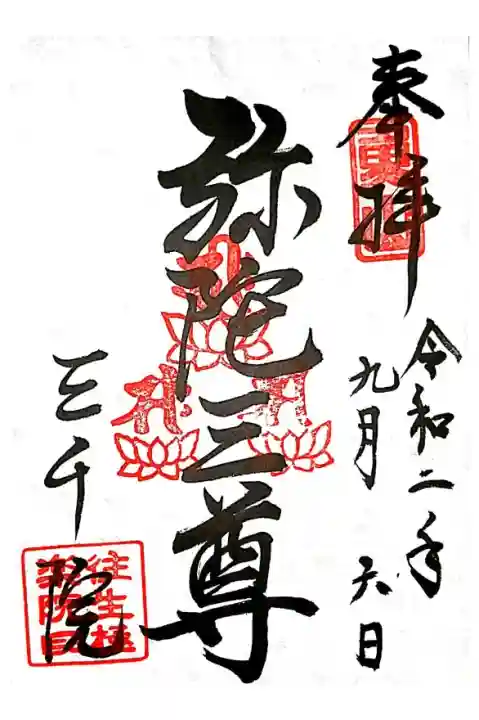 奉拝
令和二年
九月六日
弥陀三尊
三千院
往生極
楽院印